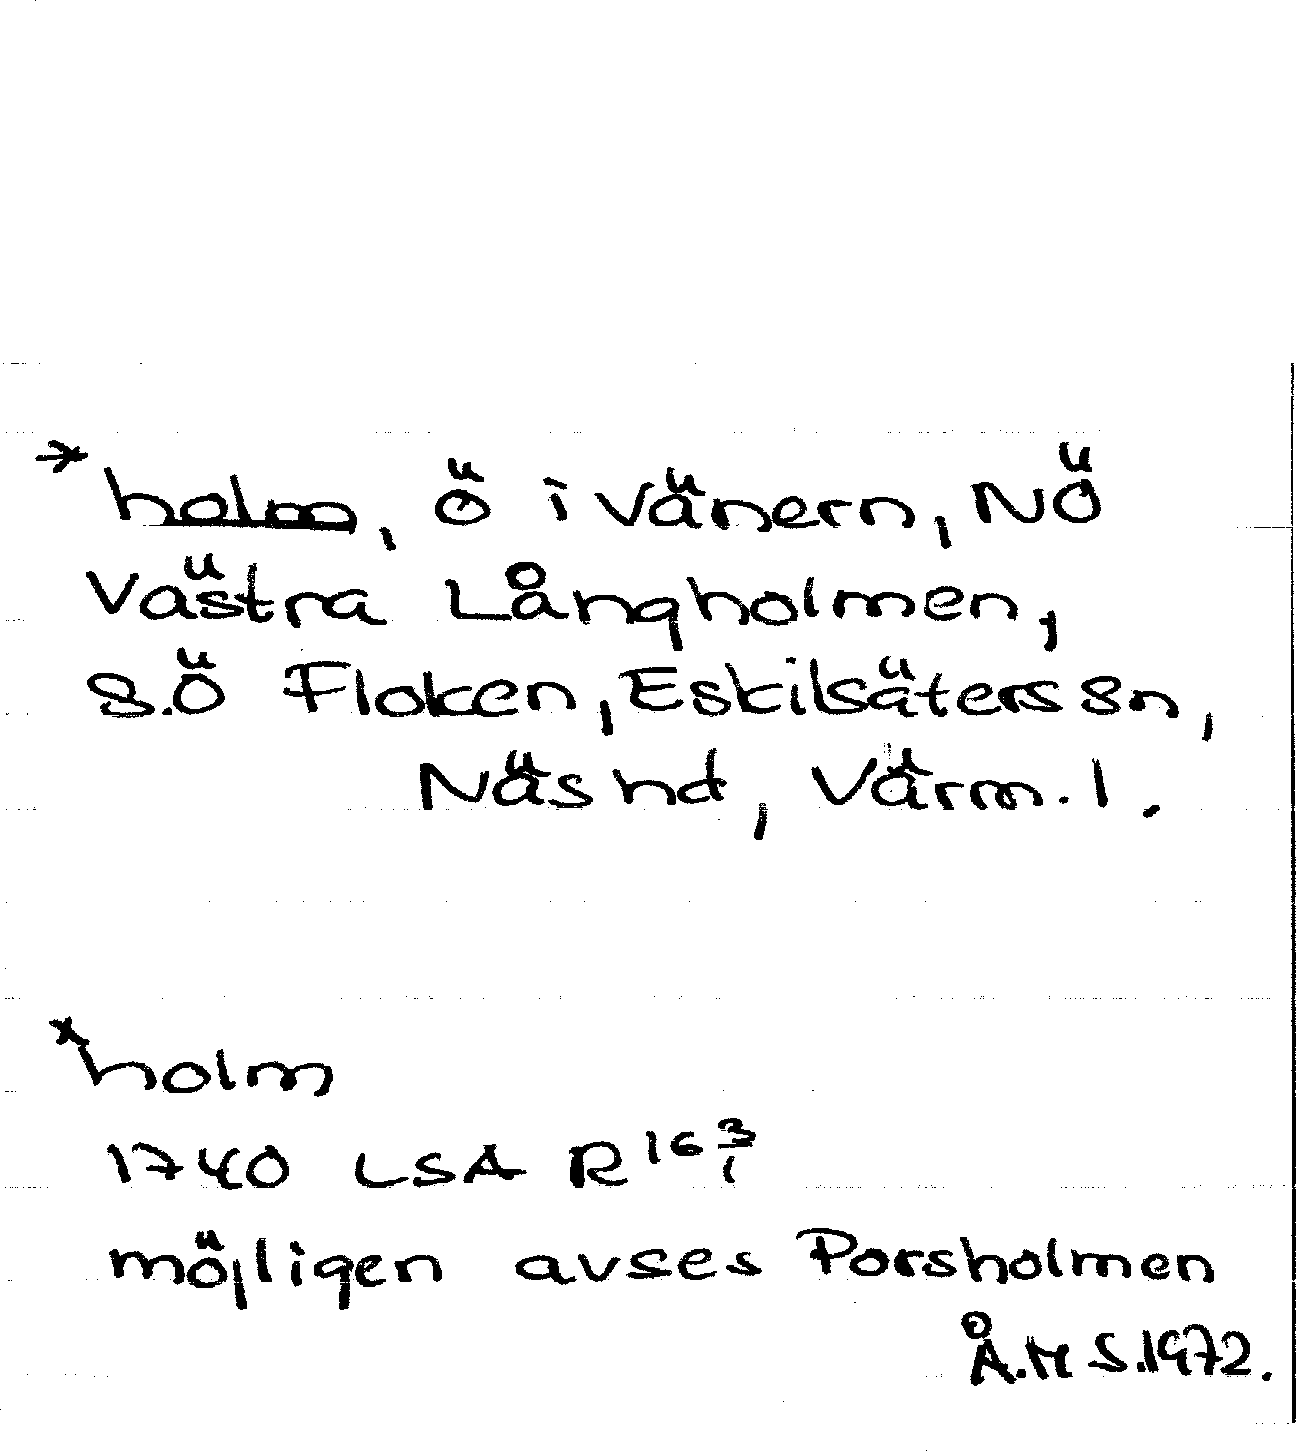 *holm, ö i Vänern, NÖ
Västra Långholmen,
S.Ö Floken, Eskilsäters sn,
Näs hd, Värm. l.
*holm
1740 LSA R16 3/1
möjligen avses Porsholmen
Å.M S.1972.